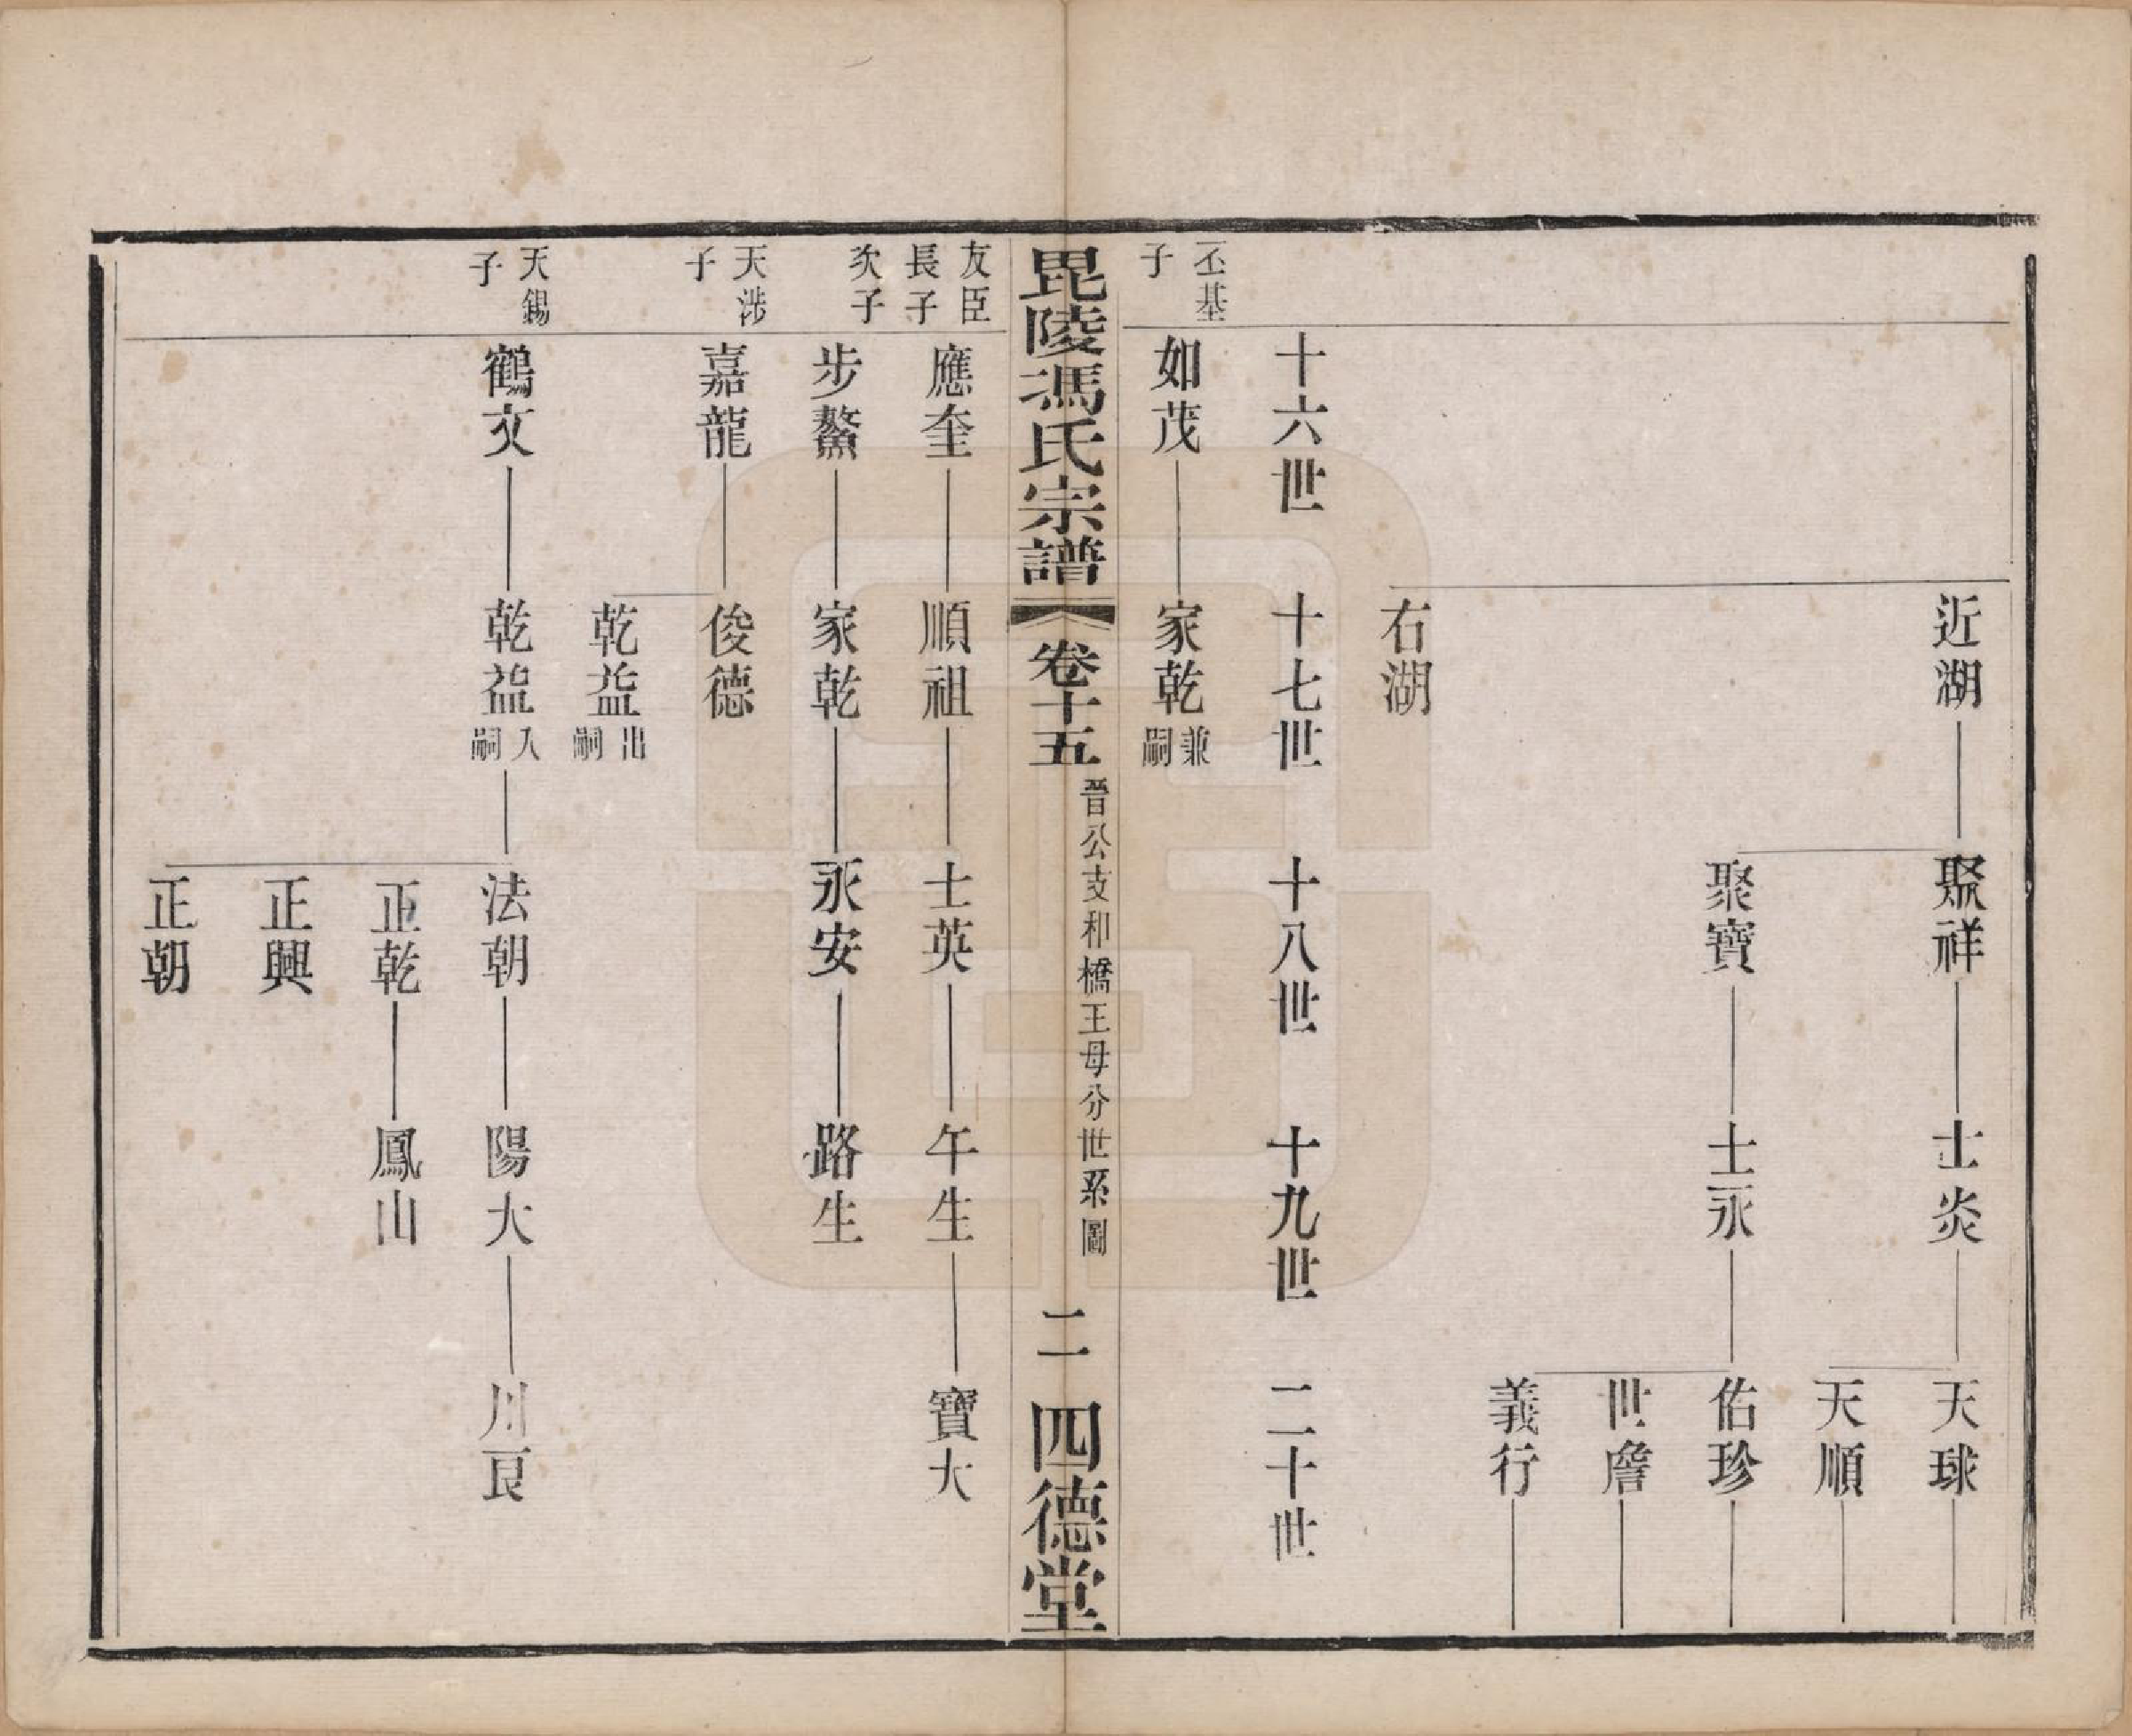 近湖 聚祥 士炎 天球
天順
聚寶 士永 佑珍
世詹
義行
右湖
十六世 十七世 十八世 十九世 二十世
丕基子 如茂 家乾 兼嗣
毘陵馮氏宗譜 卷十五 晉公支和橋王母分世系圖 二 四德堂
友臣長子 應奎 順祖 士英 午生 寶大
次子 步鰲 家乾 永安 路生
天涉子 嘉龍 俊德
乾益 出嗣
天錫子 鶴文 乾益 入嗣 法朝 陽大 川艮
正乾 鳳山
正興
正朝